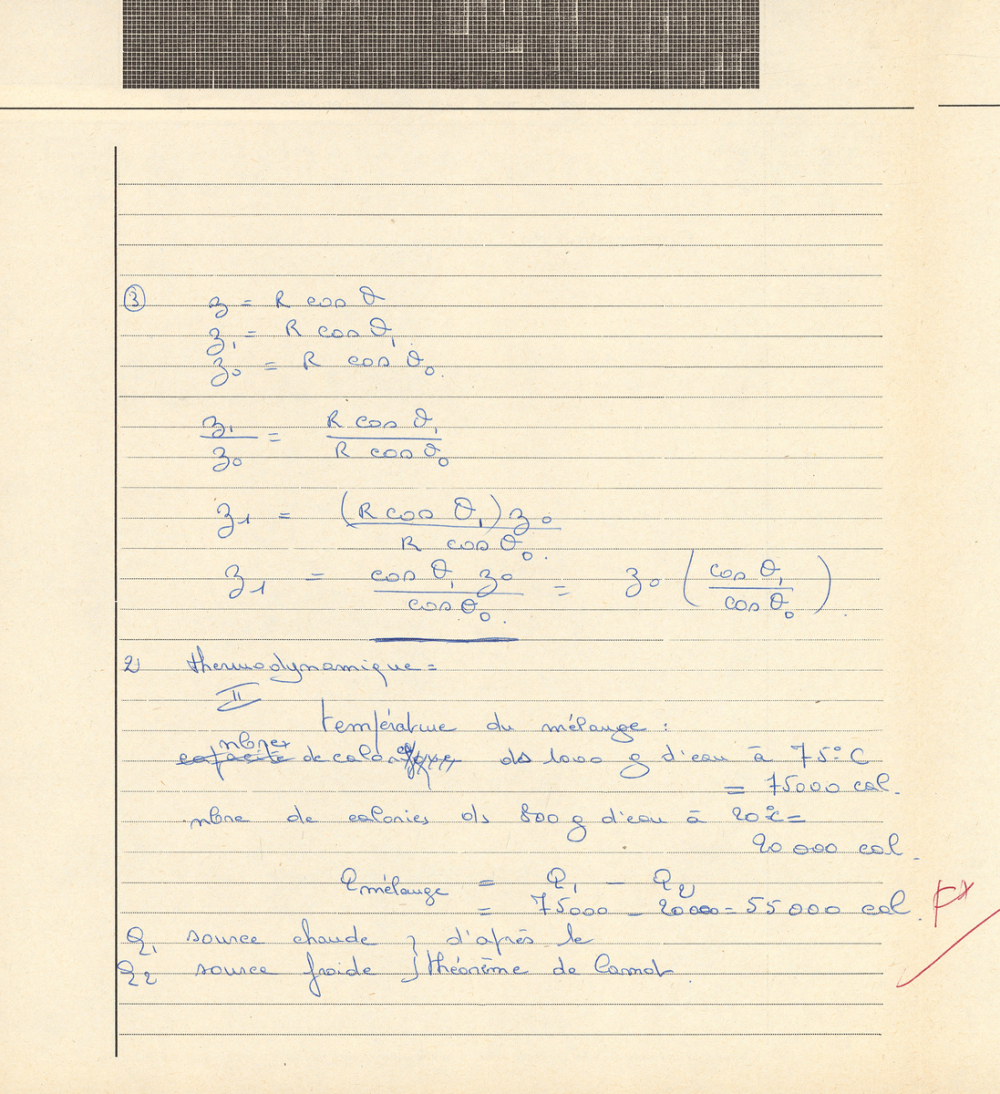 ③ z = R cos θ
z₁ = R cos θ₁
z₀ = R cos θ₀.
z₁/z₀ = R cos θ₁ / R cos θ₀
z₁ = (R cos θ₁) z₀ / R cos θ₀.
z₁ = cos θ₁ z₀ / cos θ₀. = z₀ (cos θ₁ / cos θ₀).
2) thermodynamique =
II
température du mélange :
nbre de calories ds 1000 g d'eau à 75°C
= 75000 cal.
nbre de calories ds 800 g d'eau à 20°C =
20 000 cal.
Q mélange = Q₁ - Q₂
= 75000 - 20000 = 55000 cal.
Q₁ source chaude } d'après le
Q₂ source froide } théorème de Carnot.